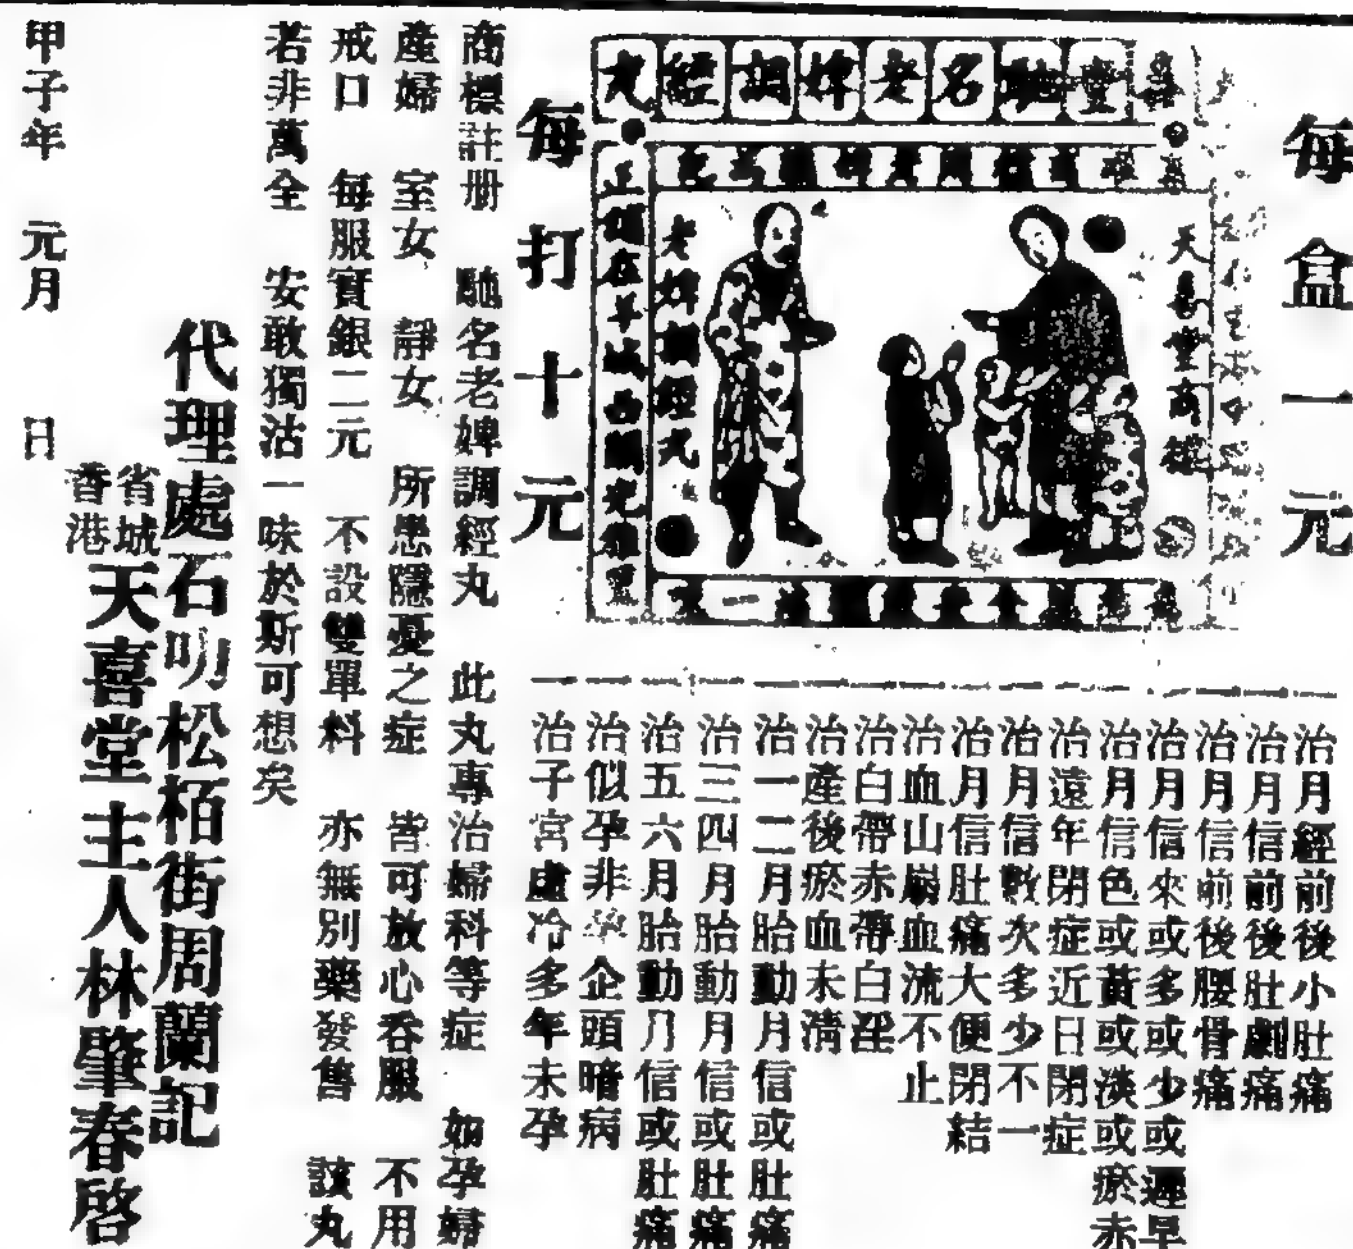 每盒一元
馳名老婢調經丸
天喜堂商標
老婢調經丸
每打十元
一治月經前後小肚痛
一治月信前後肚劇痛
一治月信前後腰骨痛
一治月信來或多或少或遲早
一治月信色或黃或淡或瘀赤
一治遠年閉症近日閉症
一治月信數次多少不一
一治月信肚痛大便閉結
一治血山崩血流不止
一治白帶赤帶白淫
一治產後瘀血未清
一治一二月胎動月信或肚痛
一治三四月胎動月信或肚痛
一治五六月胎動月信或肚痛
一治似孕非孕企頭暗病
一治子宮虛冷多年未孕
商標註册 馳名老婢調經丸 此丸專治婦科等症 如孕婦
產婦 室女 靜女 所患隱憂之症 皆可放心吞服 不用
戒口 每服實銀二元 不設雙單料 亦無別藥發售 該丸
若非萬全 安敢獨沽一味於斯可想矣
代理處石叻松栢街周蘭記
省城
香港
天喜堂主人林肇春啓
甲子年 元月 日